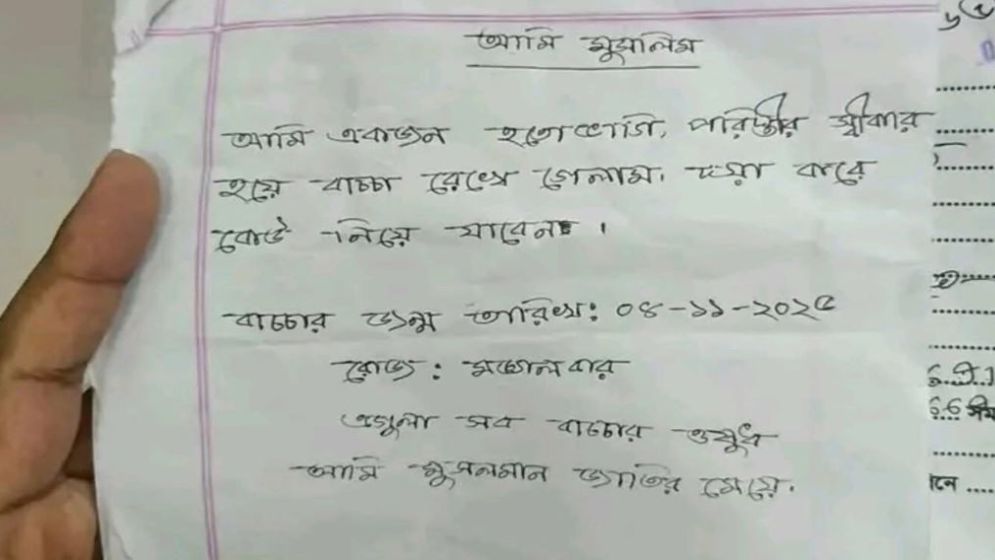 আমি মুসলিম
আমি একজন হতোভাগি, পরিস্তীর স্বীকার
হয়ে বাচ্চা রেখে গেলাম, দয়া করে
কেউ নিয়ে যাবেন।
বাচ্চার জন্ম তারিখ: ০৪-১১-২০২৫
রোজ: মঙ্গেলবার
এগুলা সব বাচ্চার ওষুধ
আমি মুসলমান জাতির মেয়ে.